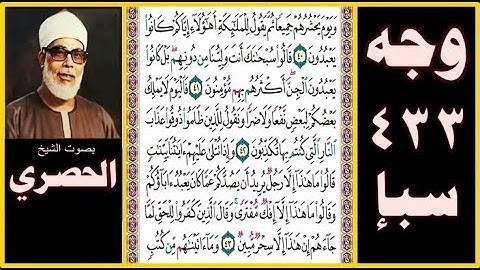 وجه
٤٣٣
سبإ
بصوت الشيخ
الحصري
وَيَوْمَ يَحْشُرُهُمْ جَمِيعًا ثُمَّ يَقُولُ لِلْمَلَٰٓئِكَةِ أَهَٰٓؤُلَآءِ إِيَّاكُمْ كَانُوا۟
يَعْبُدُونَ ٤٠ قَالُوا۟ سُبْحَٰنَكَ أَنتَ وَلِيُّنَا مِن دُونِهِم بَلْ كَانُوا۟
يَعْبُدُونَ ٱلْجِنَّ أَكْثَرُهُم بِهِم مُّؤْمِنُونَ ٤١ فَٱلْيَوْمَ لَا يَمْلِكُ
بَعْضُكُمْ لِبَعْضٍ نَّفْعًا وَلَا ضَرًّا وَنَقُولُ لِلَّذِينَ ظَلَمُوا۟ ذُوقُوا۟ عَذَابَ
ٱلنَّارِ ٱلَّتِى كُنتُم بِهَا تُكَذِّبُونَ ٤٢ وَإِذَا تُتْلَىٰ عَلَيْهِمْ ءَايَٰتُنَا بَيِّنَٰتٍ
قَالُوا۟ مَا هَٰذَآ إِلَّا رَجُلٌ يُرِيدُ أَن يَصُدَّكُمْ عَمَّا كَانَ يَعْبُدُ ءَابَآؤُكُمْ
وَقَالُوا۟ مَا هَٰذَآ إِلَّآ إِفْكٌ مُّفْتَرًى وَقَالَ ٱلَّذِينَ كَفَرُوا۟ لِلْحَقِّ لَمَّا
جَآءَهُمْ إِنْ هَٰذَآ إِلَّا سِحْرٌ مُّبِينٌ ٤٣ وَمَآ ءَاتَيْنَٰهُم مِّن كُتُبٍ